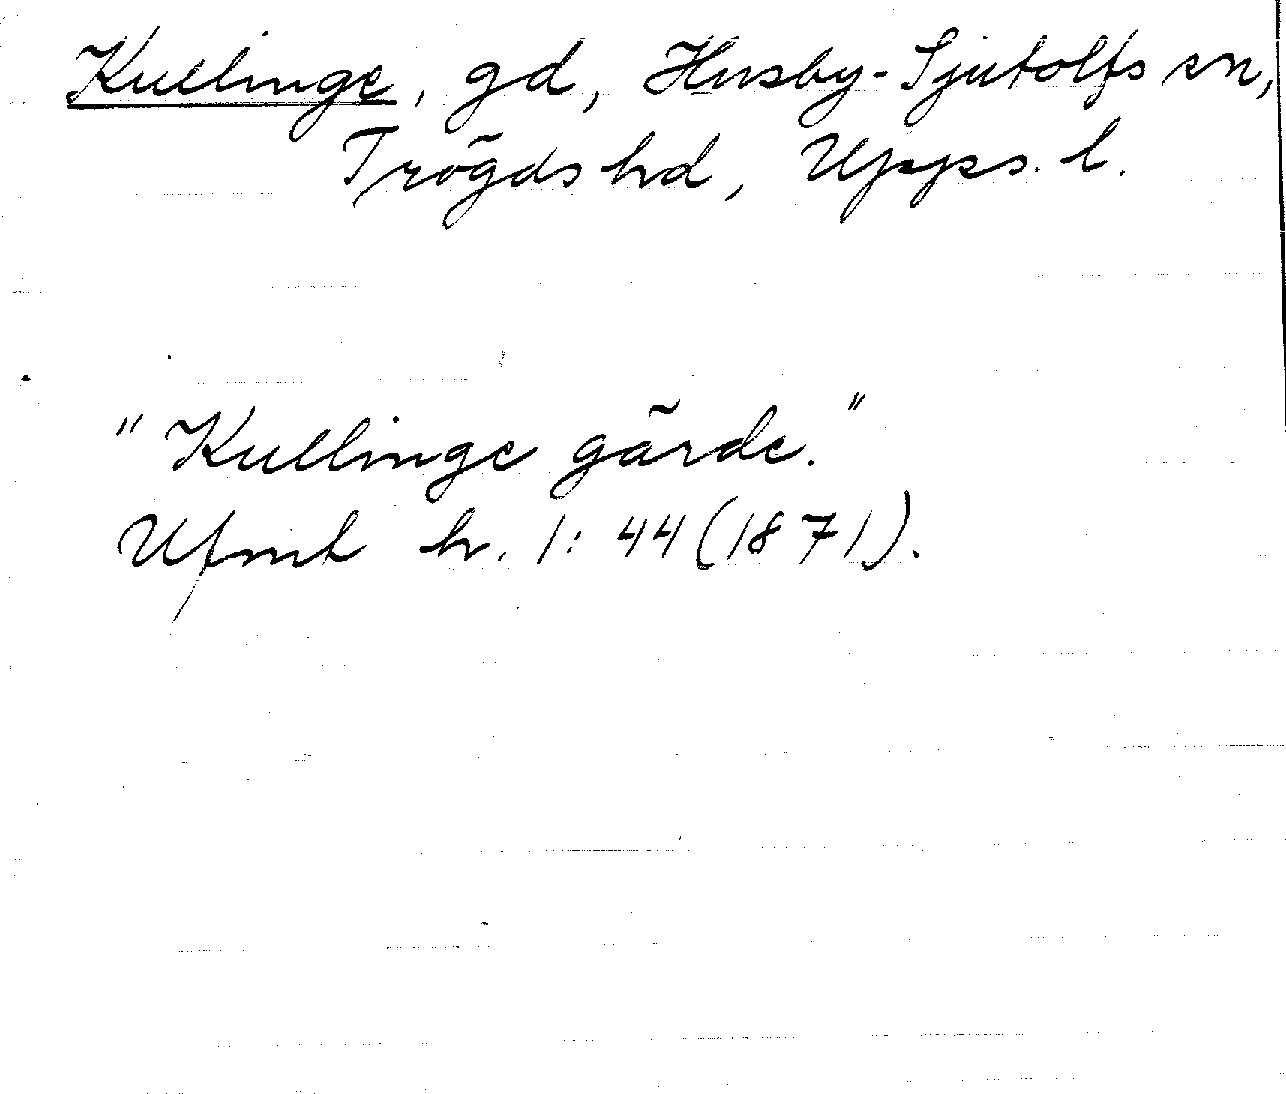 Kullinge, gd, Husby-Sjutolfs sn,
Trögds hd, Upps. l.
"Kullinge gärde."
Ufmt h. 1: 44 (1871).